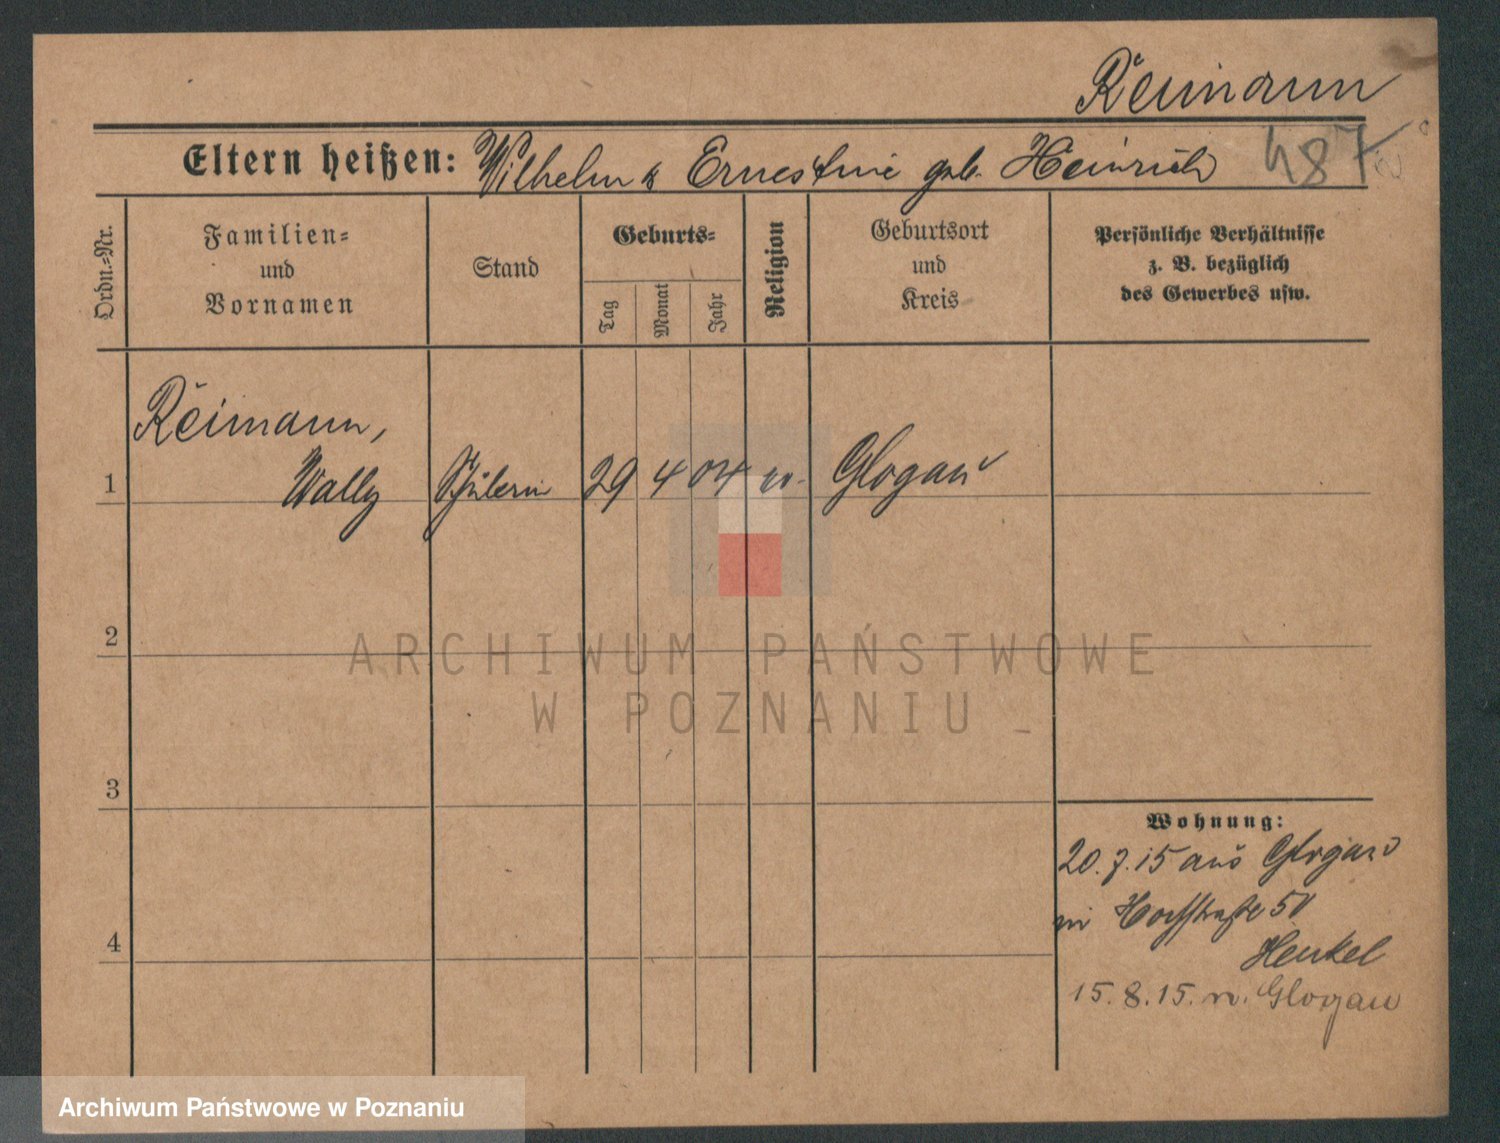 Reimann
Eltern heißen: Wilhelm & Ernestine geb. Heinrich 487
Ordn.-Nr.
Familien-
und
Vornamen
Stand
Geburts-
Tag
Monat
Jahr
Religion
Geburtsort
und
Kreis
Persönliche Verhältnisse
z. B. bezüglich
des Gewerbes usw.
Reimann,
1 Wally Schülerin 29 4 04 ev. Glogau
2
ARCHIWUM PAŃSTWOWE
W POZNANIU
3
Wohnung:
20.7.15 aus Glogau
in Hochstraße 51
Henkel
4
15.8.15. n. Glogau
Archiwum Państwowe w Poznaniu